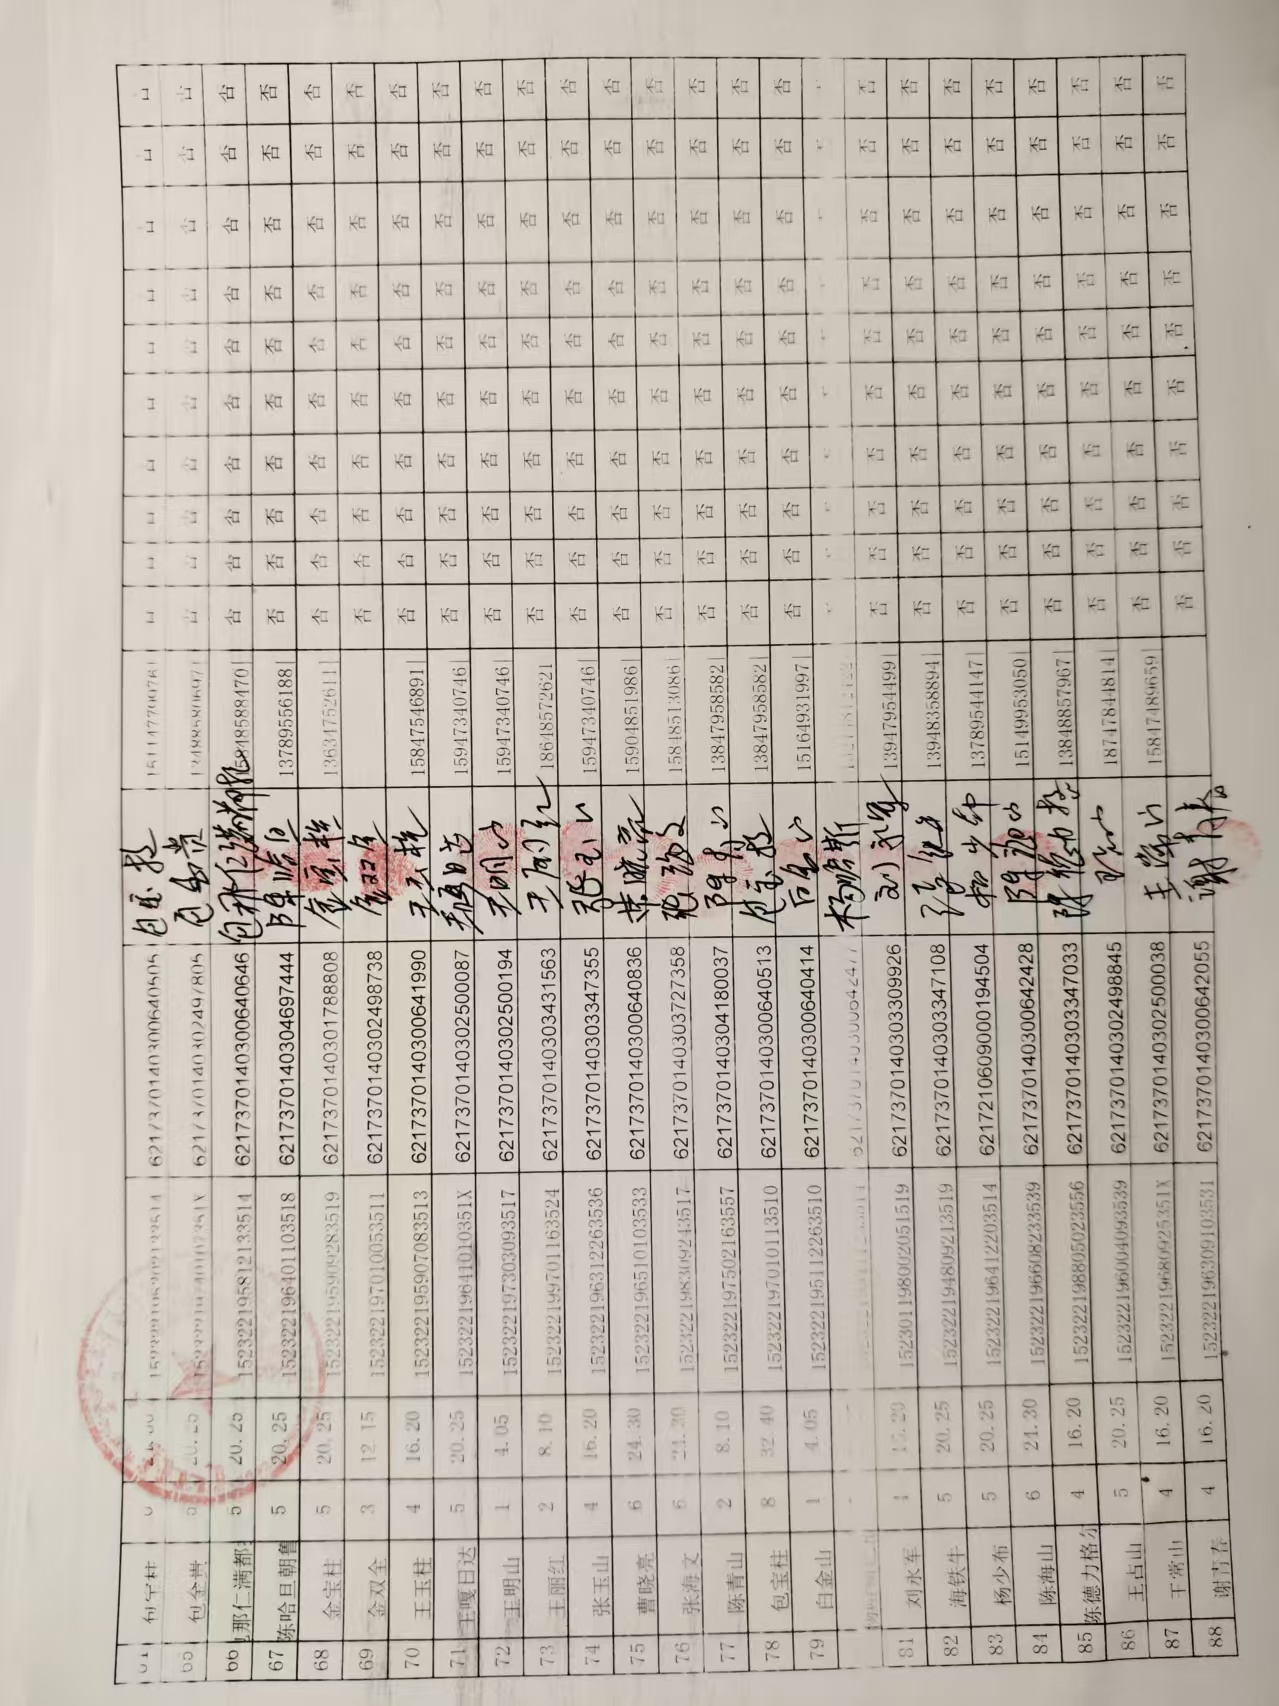 66 5 20.25 152322195812133514 6217370140300640646 15848588470 否 否 否 否 否 否 否 否 否 否
67 陈哈旦朝鲁 5 20.25 152322196401103518 6217370140304697444 13789556188 否 否 否 否 否 否 否 否 否 否
68 金宝柱 5 20.25 152322195909283519 6217370140301788808 金宝柱 13634752611 否 否 否 否 否 否 否 否 否 否
69 金双全 3 12.15 152322197010053511 6217370140302498738 否 否 否 否 否 否 否 否 否 否
70 王玉柱 4 16.20 152322195907083513 6217370140300641990 王玉柱 15847546891 否 否 否 否 否 否 否 否 否 否
71 王嘎日达 5 20.25 15232219641010351X 6217370140302500087 15947340746 否 否 否 否 否 否 否 否 否 否
72 王明山 1 4.05 152322197303093517 6217370140302500194 王明山 15947340746 否 否 否 否 否 否 否 否 否 否
73 王丽红 2 8.10 152322199701163524 6217370140303431563 18648572621 否 否 否 否 否 否 否 否 否 否
74 张玉山 4 16.20 152322196312263536 6217370140303347355 张玉山 15947340746 否 否 否 否 否 否 否 否 否 否
75 曹晓亮 6 24.30 152322196510103533 6217370140300640836 15904851986 否 否 否 否 否 否 否 否 否 否
76 张海文 6 152322198309243517 6217370140303727358 15848513086 否 否 否 否 否 否 否 否 否 否
77 陈青山 2 8.10 152322197502163557 6217370140304180037 陈青山 13847958582 否 否 否 否 否 否 否 否 否 否
78 包宝柱 8 32.40 152322197010113510 6217370140300640513 包宝柱 13847958582 否 否 否 否 否 否 否 否 否 否
79 白金山 1 4.05 152322195112263510 6217370140300640414 白金山 15164931997 否 否 否 否 否 否 否 否 否 否
6217370140300642477
81 刘永军 152301198002051519 6217370140303309926 刘永军 13947954499 否 否 否 否 否 否 否 否 否 否
82 海铁牛 5 20.25 152322194809213519 6217370140303347108 13948358894 否 否 否 否 否 否 否 否 否 否
83 杨少布 5 20.25 152322196412203514 6217210609000194504 杨少布 13789544147 否 否 否 否 否 否 否 否 否 否
84 陈海山 6 24.30 152322196608233539 6217370140300642428 陈海山 15149953050 否 否 否 否 否 否 否 否 否 否
85 陈德力格尔 4 16.20 152322198805023556 6217370140303347033 13848857967 否 否 否 否 否 否 否 否 否 否
86 王占山 5 20.25 152322196004093539 6217370140302498845 18747844814 否 否 否 否 否 否 否 否 否 否
87 王常山 4 16.20 15232219680925351X 6217370140302500038 王常山 15847489659 否 否 否 否 否 否 否 否 否 否
88 谢青春 4 16.20 152322196309103531 6217370140300642055 谢青春 否 否 否 否 否 否 否 否 否 否